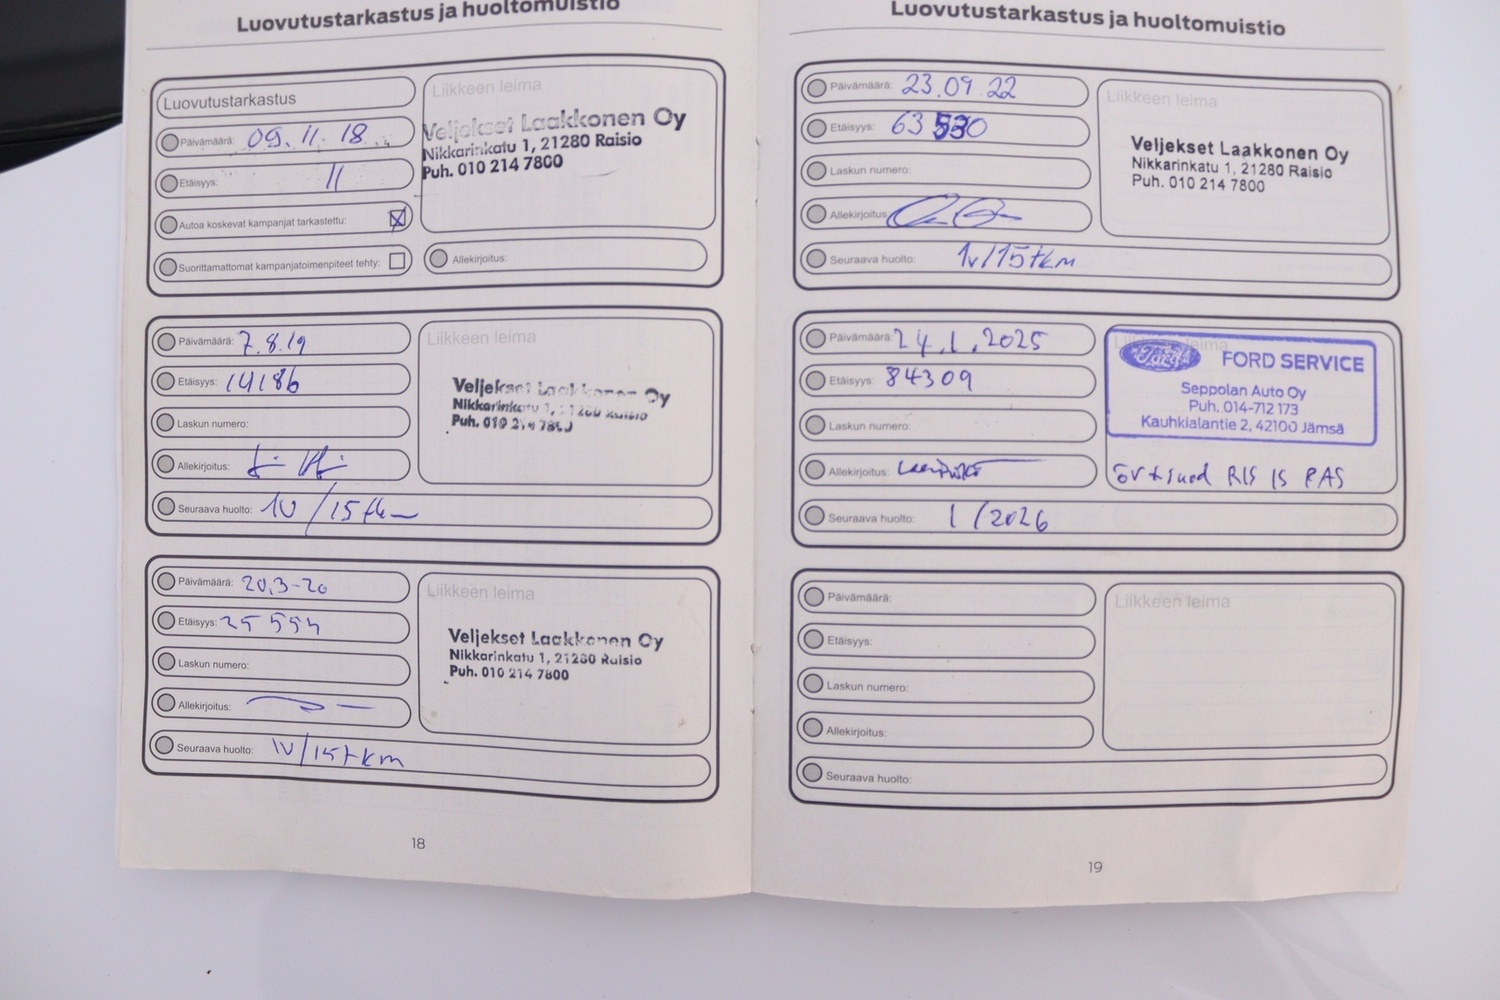 Luovutustarkastus ja huoltomuistio
Luovutustarkastus
Päivämäärä: 09.11.18
Etäisyys: 11
Autoa koskevat kampanjat tarkastettu:
Suorittamattomat kampanjatoimenpiteet tehty:
Liikkeen leima
Veljekset Laakkonen Oy
Nikkarinkatu 1, 21280 Raisio
Puh. 010 214 7800
Allekirjoitus:
Päivämäärä: 7.8.19
Etäisyys: 14186
Laskun numero:
Allekirjoitus:
Seuraava huolto: 1V/15tkm
Liikkeen leima
Veljekset Laakkonen Oy
Nikkarinkatu 1, 21280 Raisio
Puh. 010 214 7800
Päivämäärä: 20.3-20
Etäisyys: 25 554
Laskun numero:
Allekirjoitus:
Seuraava huolto: 1V/15tkm
Liikkeen leima
Veljekset Laakkonen Oy
Nikkarinkatu 1, 21280 Raisio
Puh. 010 214 7800
18
Luovutustarkastus ja huoltomuistio
Päivämäärä: 23.09.22
Etäisyys: 63530
Laskun numero:
Allekirjoitus:
Seuraava huolto: 1v/15tkm
Liikkeen leima
Veljekset Laakkonen Oy
Nikkarinkatu 1, 21280 Raisio
Puh. 010 214 7800
Päivämäärä: 24.1.2025
Etäisyys: 84309
Laskun numero:
Allekirjoitus:
Seuraava huolto: 1/2026
Liikkeen leima
Ford FORD SERVICE
Seppolan Auto Oy
Puh. 014-712 173
Kauhkialantie 2, 42100 Jämsä
RIS IS PAS
Päivämäärä:
Etäisyys:
Laskun numero:
Allekirjoitus:
Seuraava huolto:
Liikkeen leima
19